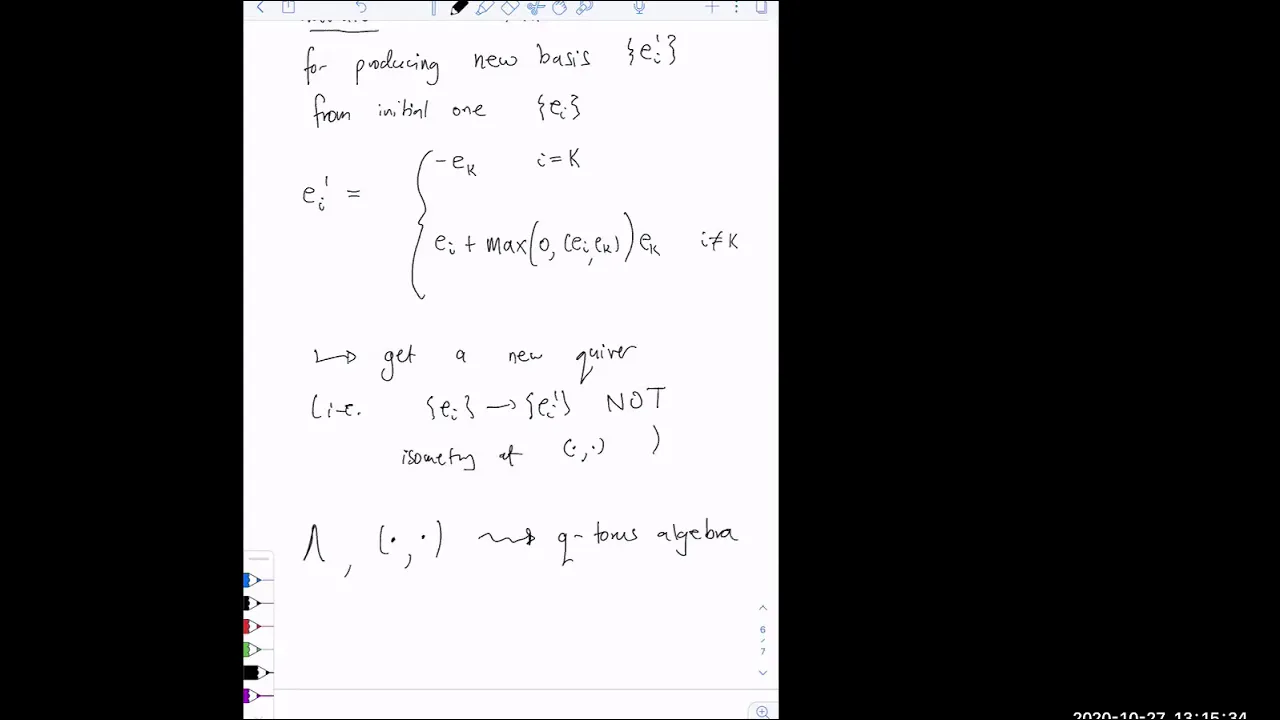 for producing new basis {e_i'}
from initial one {e_i}
-e_K i=K
e_i' =
e_i + max(0, (e_i, e_K)) e_K i≠K
↦ get a new quiver
(i.e. {e_i} → {e_i'} NOT
isometry of (·,·) )
Λ, (·,·) ⇝ q-torus algebra
6
7
2020-10-27 13:15:34